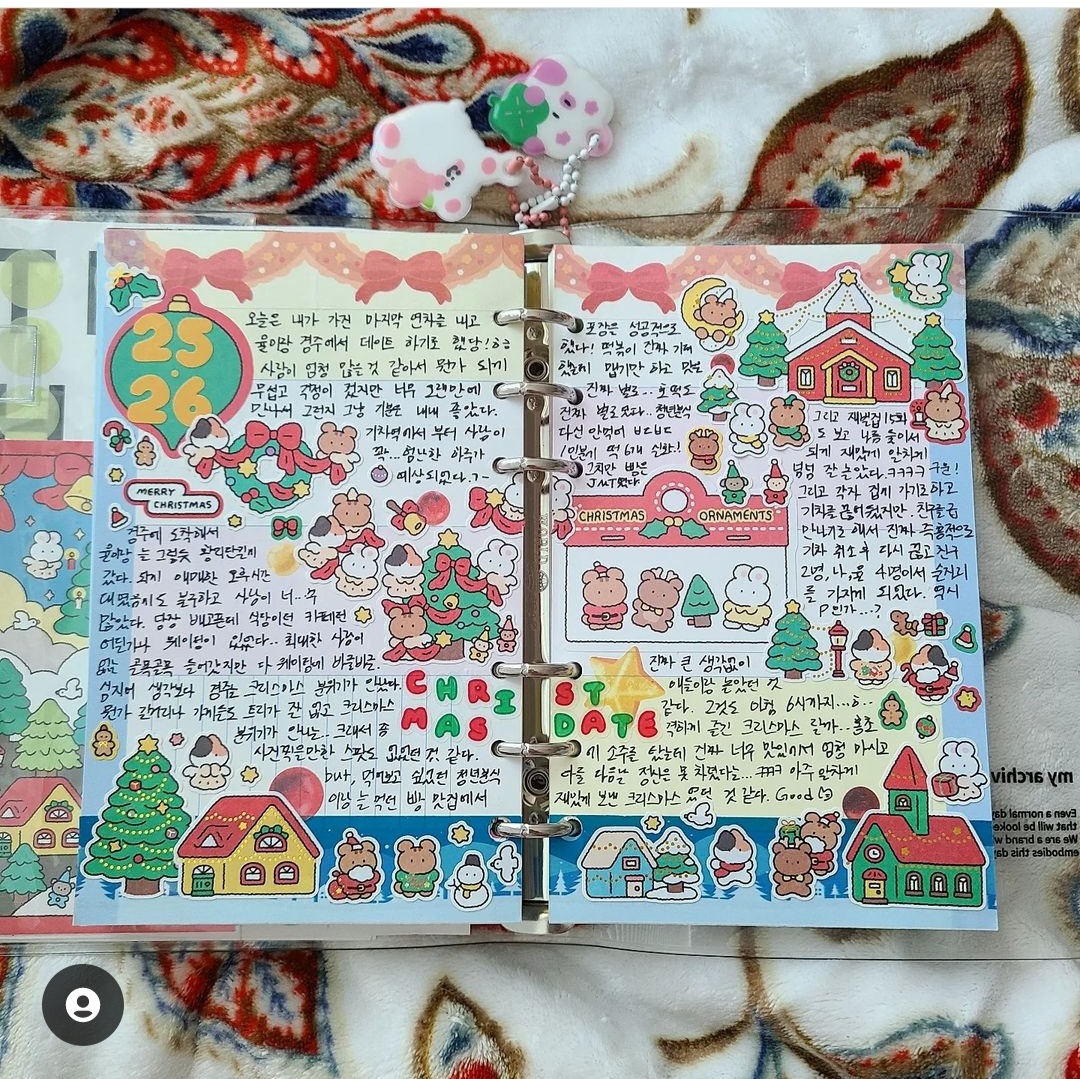 25
26
오늘은 내가 가진 마지막 연차를 내고
율이랑 경주에서 데이트 하기로 했당!ㅎㅎ
사람이 엄청 많을것 같아서 뭔가 되게
무섭고 걱정이 컸지만 너무 오랜만에
만나서 그런지 그냥 기분은 내내 좋았다.
기차역에서 부터 사람이
꽉... 험난한 하루가
예상되었다.ㄱ-
MERRY
CHRISTMAS
경주에 도착해서
율이랑 늘 그렇듯 황리단길에
갔다. 되게 애매한 오후시간
대였음에도 불구하고 사람이 너..무
많았다. 당장 배고픈데 식당이던 카페던
어딜가나 웨이팅이 있었다.. 최대한 사람이
없는 골목골목 들어갔지만 다 웨이팅에 바글바글.
심지어 생각보다 경주는 크리스마스 분위기가 안났다.
뭔가 길거리나 가게들도 트리가 잘 없고 크리스마스
분위기가 안나는... 그래서 좀
사진찍을만한 스팟도 없었던 것 같다.
무튼, 먹어보고 싶었던 청년분식
이랑 늘 먹던 빵 맛집에서
CHRI
MAS
포장은 성공적으로
했다! 떡볶이 진짜 기대
했는데 맵기만 하고 맛은
진짜 별로... 호떡도
진짜 별로였다.. 청년분식
다신 안먹어 ㅂㄷㅂㄷ
1인분에 떡 6개 실화!
그치만 빵은
JMT였다.
그리고 재벌집 15화
도 보고 나름 둘이서
되게 재밌게 알차게
냠냠 잘 놀았다.ㅋㅋㅋㅋ
그리고 각자 집에 가기로하고
기차를 끊어뒀지만.. 친구들이
만나기로 해서 진짜 즉흥적으로
기차 취소 후 다시 끊고 친구
2명, 나, 율 4명이서 술자리
를 가지게 되었다. 역시
P인가...?
CHRISTMAS
ORNAMENTS
진짜 큰 생각없이
애들이랑 놀았던 것
같다. 그것도 아침 6시까지...ㅎ
격하게 즐긴 크리스마스 랄까.. 홍초
에 소주를 탔는데 진짜 너무 맛있어서 엄청 마시고
다들 다음날 정신은 못 차렸다는... ㅋㅋㅋ 아주 알차게
재밌게 보낸 크리스마스 였던 것 같다. Good
ST
DATE
my archiv
Even a normal da
that will be looke
We are a brand w
embodies this da